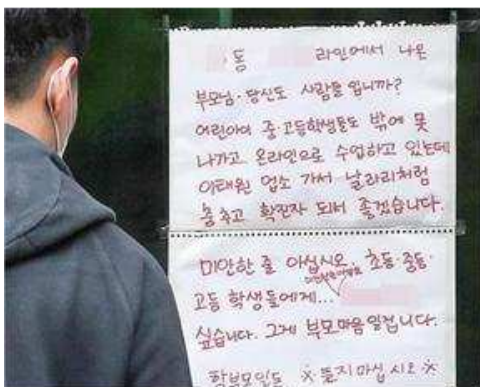 동 라인에서 나온
부모님·당신도 사람들 입니까?
어린아이 중·고등학생들도 밖에 못
나가고 온라인으로 수업하고 있는데
이태원 업소 가서 날라리처럼
춤추고 확진자 되서 좋겠습니다.
미안한 줄 아십시오. 초등·중등·
고등 학생들에게...
싶습니다. 그게 부모마음 일겁니다.
학부모인도 ※ 뜯지 마십시오 ※